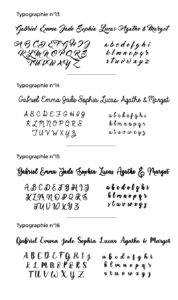 Typographie n°13
Gabriel Emma Jade Sophia Lucas Agathe & Margot
A B C D E F G H I J
a b c d e f g h i
K L M N O P Q R S
k l m n o p q r
T U V W X Y Z
s t u v w x y z
Typographie n°14
Gabriel Emma Jade Sophia Lucas Agathe & Margot
A B C D E F G H I J
a b c d e f g h i j
K L M N O P Q R S
k l m n o p q r
T U V W X Y Z
s t u v w x y z
Typographie n°15
Gabriel Emma Jade Sophia Lucas Agathe & Margot
A B C D E F G H I J
a b c d e f g h i
K L M N O P Q R S
k l m n o p q r
T U V W X Y Z
s t u v w x y z
Typographie n°16
Gabriel Emma Jade Sophia Lucas Agathe & Margot
A B C D E F G H I J
a b c d e f g h i j
K L M N O P Q R S
k l m n o p q r
T U V W X Y Z
s t u v w x y z